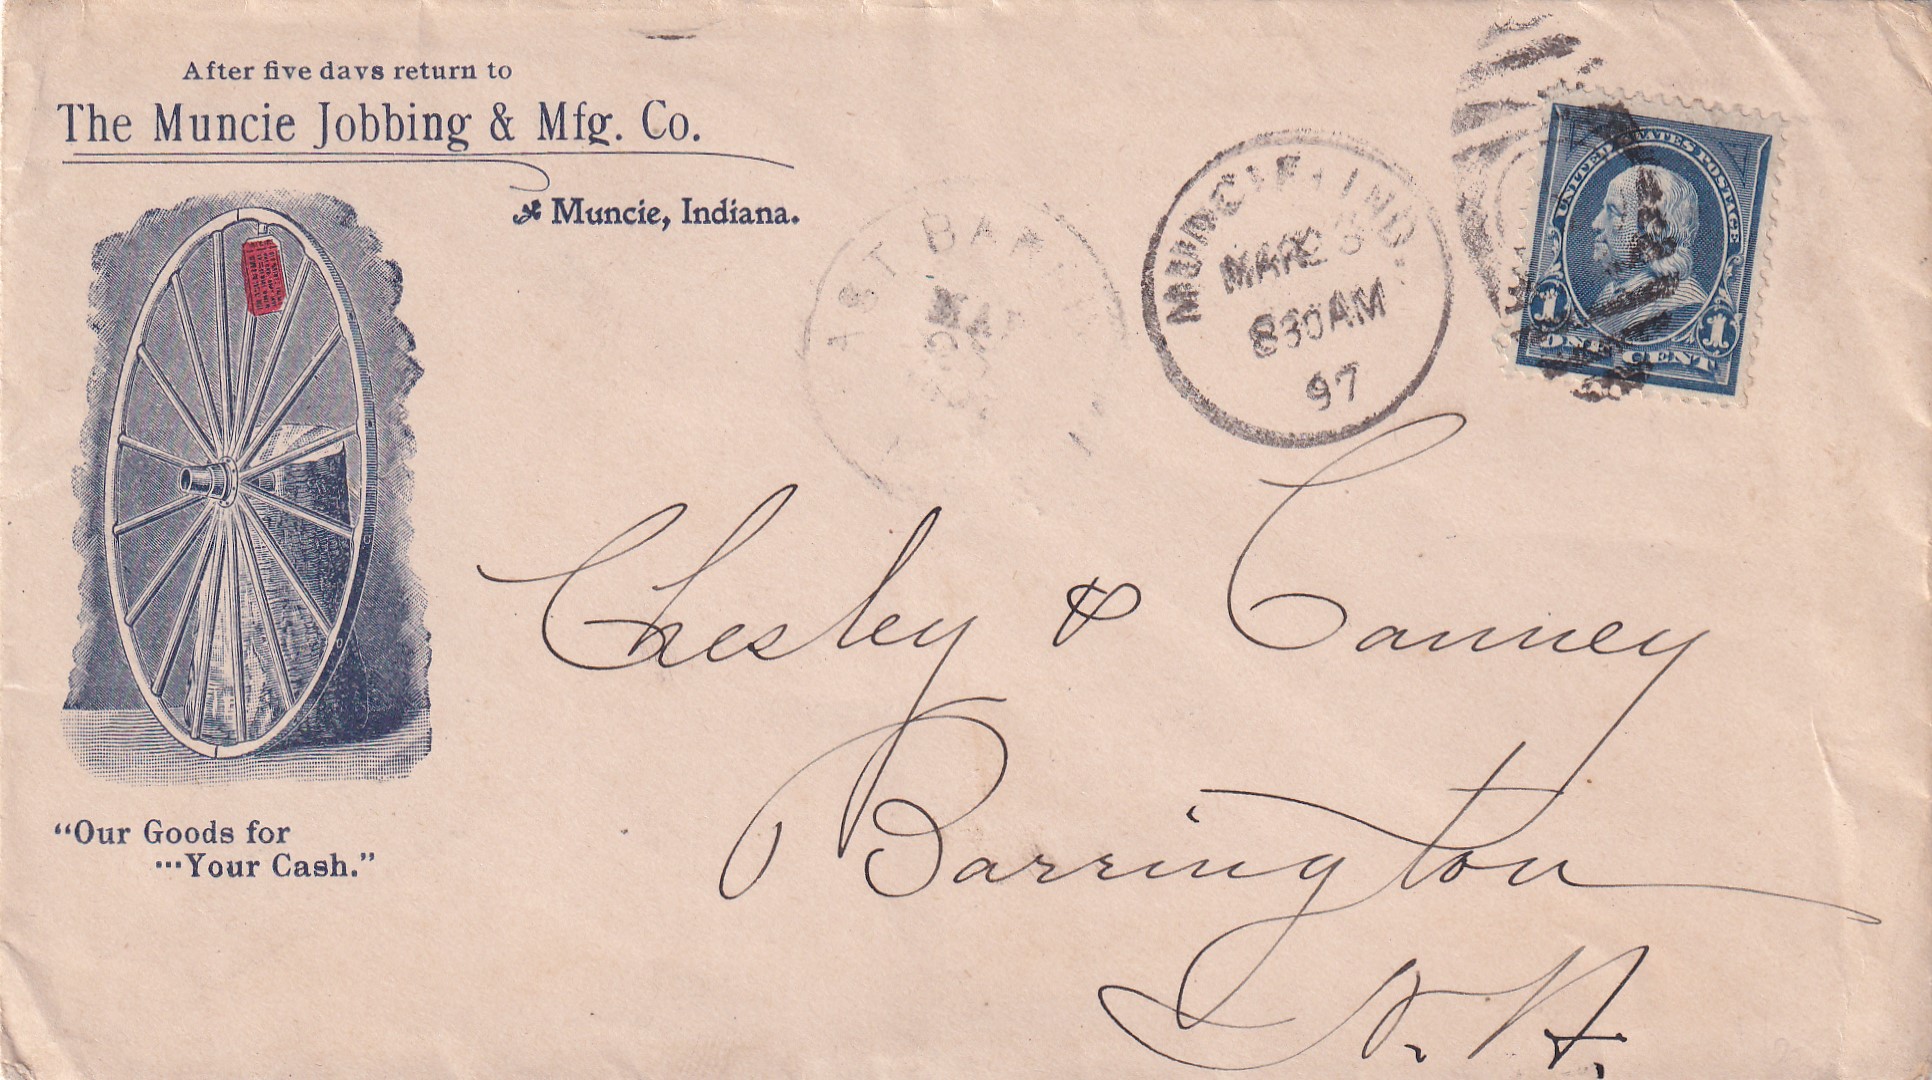 After five days return to
The Muncie Jobbing & Mfg. Co.
Muncie, Indiana.
"Our Goods for
...Your Cash."
MUNCIE, IND.
MAR 23
830AM
97
UNITED STATES POSTAGE
1 1
ONE CENT
Chesley & Canney
Barrington
N. H.